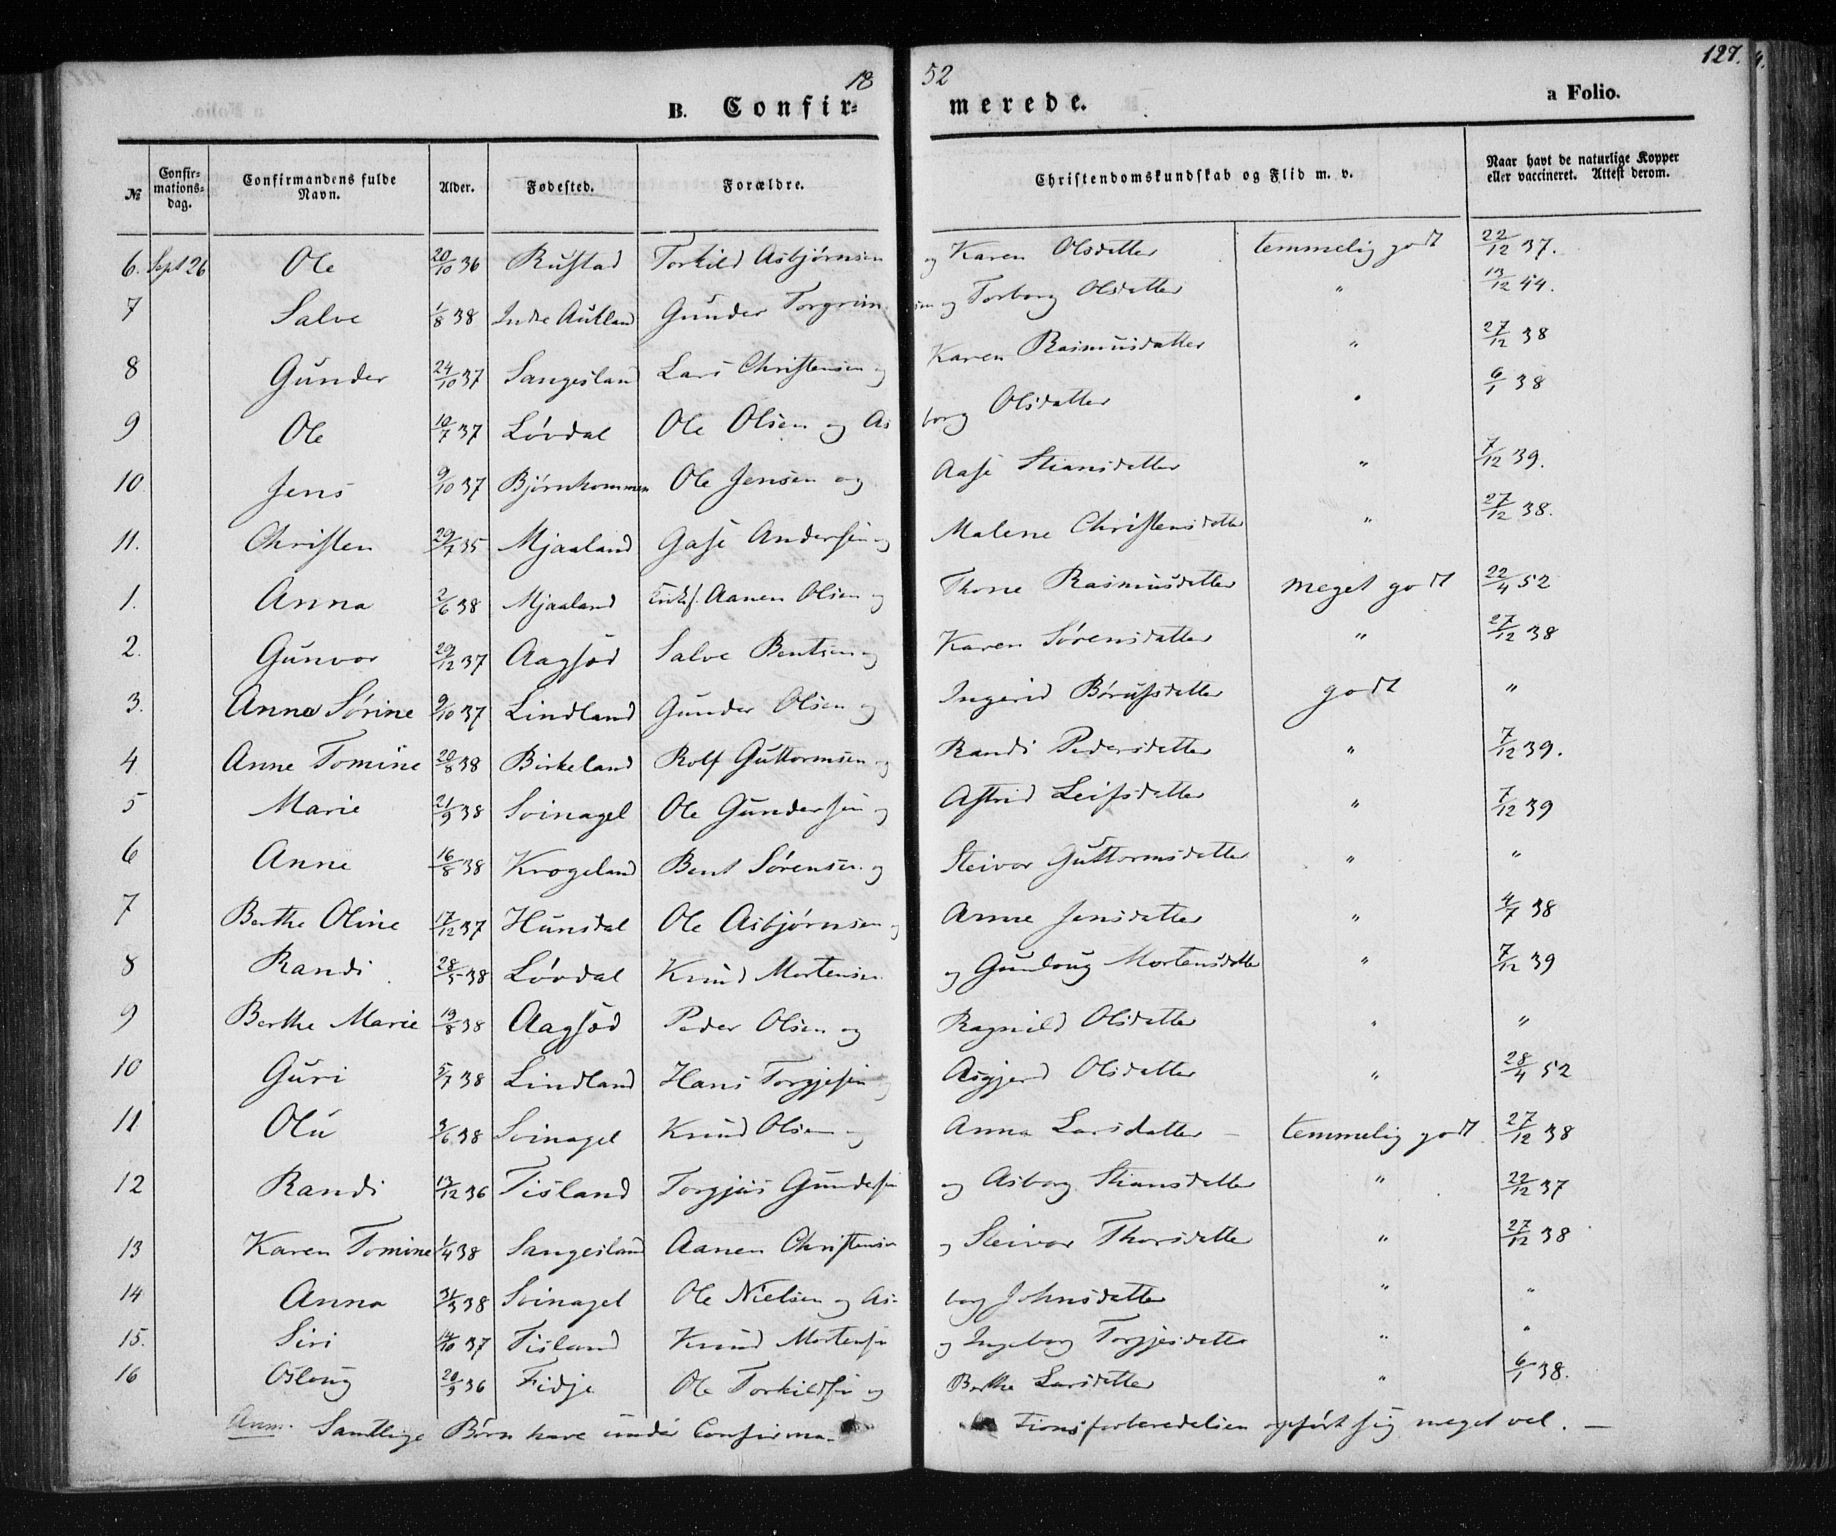 18 52 127.
B. Confir- merede. a Folio.
№ Confir-mations-dag. Confirmandens fulde Navn. Alder. Fødested. Forældre. Christendomskundskab og Flid m. v. Naar havt de naturlige Kopper eller vaccineret. Attest derom.
6. Sept 26 Ole 20/10 36 Rustad Torkild Asbjørnsen og Karen Olsdatter temmelig godt 22/12 37.
7 Salve 1/8 38 Indre Autland Gunder Torgrimsen og Torborg Olsdatter " 13/12 44.
8 Gunder 24/10 37 Sangesland Lars Christensen og Karen Rasmusdatter " 27/12 38
9 Ole 10/7 37 Løvdal Ole Olsen og Asborg Olsdatter " 6/1 38
10 Jens 9/10 37 Bjørnkommen Ole Jensen og Aase Stiansdatter " 7/12 39.
11. Christen 29/7 35 Mjaaland Andersen og Malene Christensdatter " 27/12 38.
1. Anna 2/6 38 Mjaaland Aanen Olsen og Thone Rasmusdatter meget godt 22/4 52
2. Gunvor 29/12 37 Aagsød Salve Bentsen og Karen Sørensdatter " 27/12 38
3. Anna Sørine 9/10 37 Lindland Gunder Olsen og Ingerid Børufsdatter godt "
4 Anne Tomine 20/8 38 Birkeland Rolf Guttormsen og Randi Pedersdatter " 7/12 39.
5 Marie 21/9 38 Svinagel Ole Gundersen og Astrid Leifsdatter " 7/12 39
6 Anne 16/8 38 Krogeland Bent Sørensen og Steivor Guttormsdatter " "
7 Berthe Oline 17/12 37 Hunsdal Ole Asbjørnsen og Anne Jensdatter " 4/7 38
8 Randi 28/5 38 Løvdal Knud Mortensen og Gunloug Mortensdatter " 7/12 39
9 Berthe Marie 19/8 38 Aagsød Peder Olsen og Ragnild Olsdatter " "
10 Guri 5/7 38 Lindland Hans Torgjesen og Asgjerd Olsdatter " 28/4 52
11 Olu 3/6 38 Svinagel Knud Olsen og Anna Larsdatter - temmelig godt 27/12 38
12 Randi 13/12 36 Tisland Torgjus Gundersen og Asborg Stiansdatter " 22/12 37
13 Karen Tomine 1/4 38 Sangesland Aanen Christensen og Steivor Thorsdatter " 27/12 38
14 Anna 31/3 38 Svinagel Ole Nielsen og Asborg Johnsdatter " "
15. Siri 14/10 37 Tisland Knud Mortensen og Ingeborg Torgjesdatter " "
16 Osloug 20/5 36 Fidje Ole Torkildsen og Berthe Larsdatter " 6/1 38.
Anm. Samtlige Børn have under Confirma- tionsforberedelsen opført sig meget vel. -